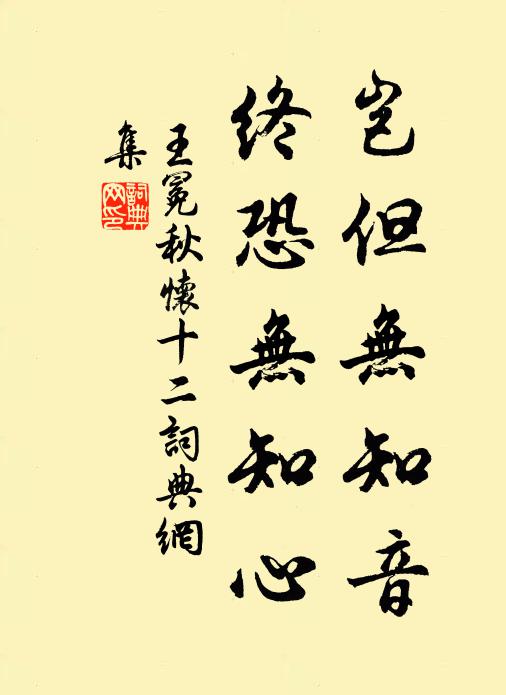 豈但無知音
終恐無知心
王冕秋懷十二詞典網
集
詞典網印